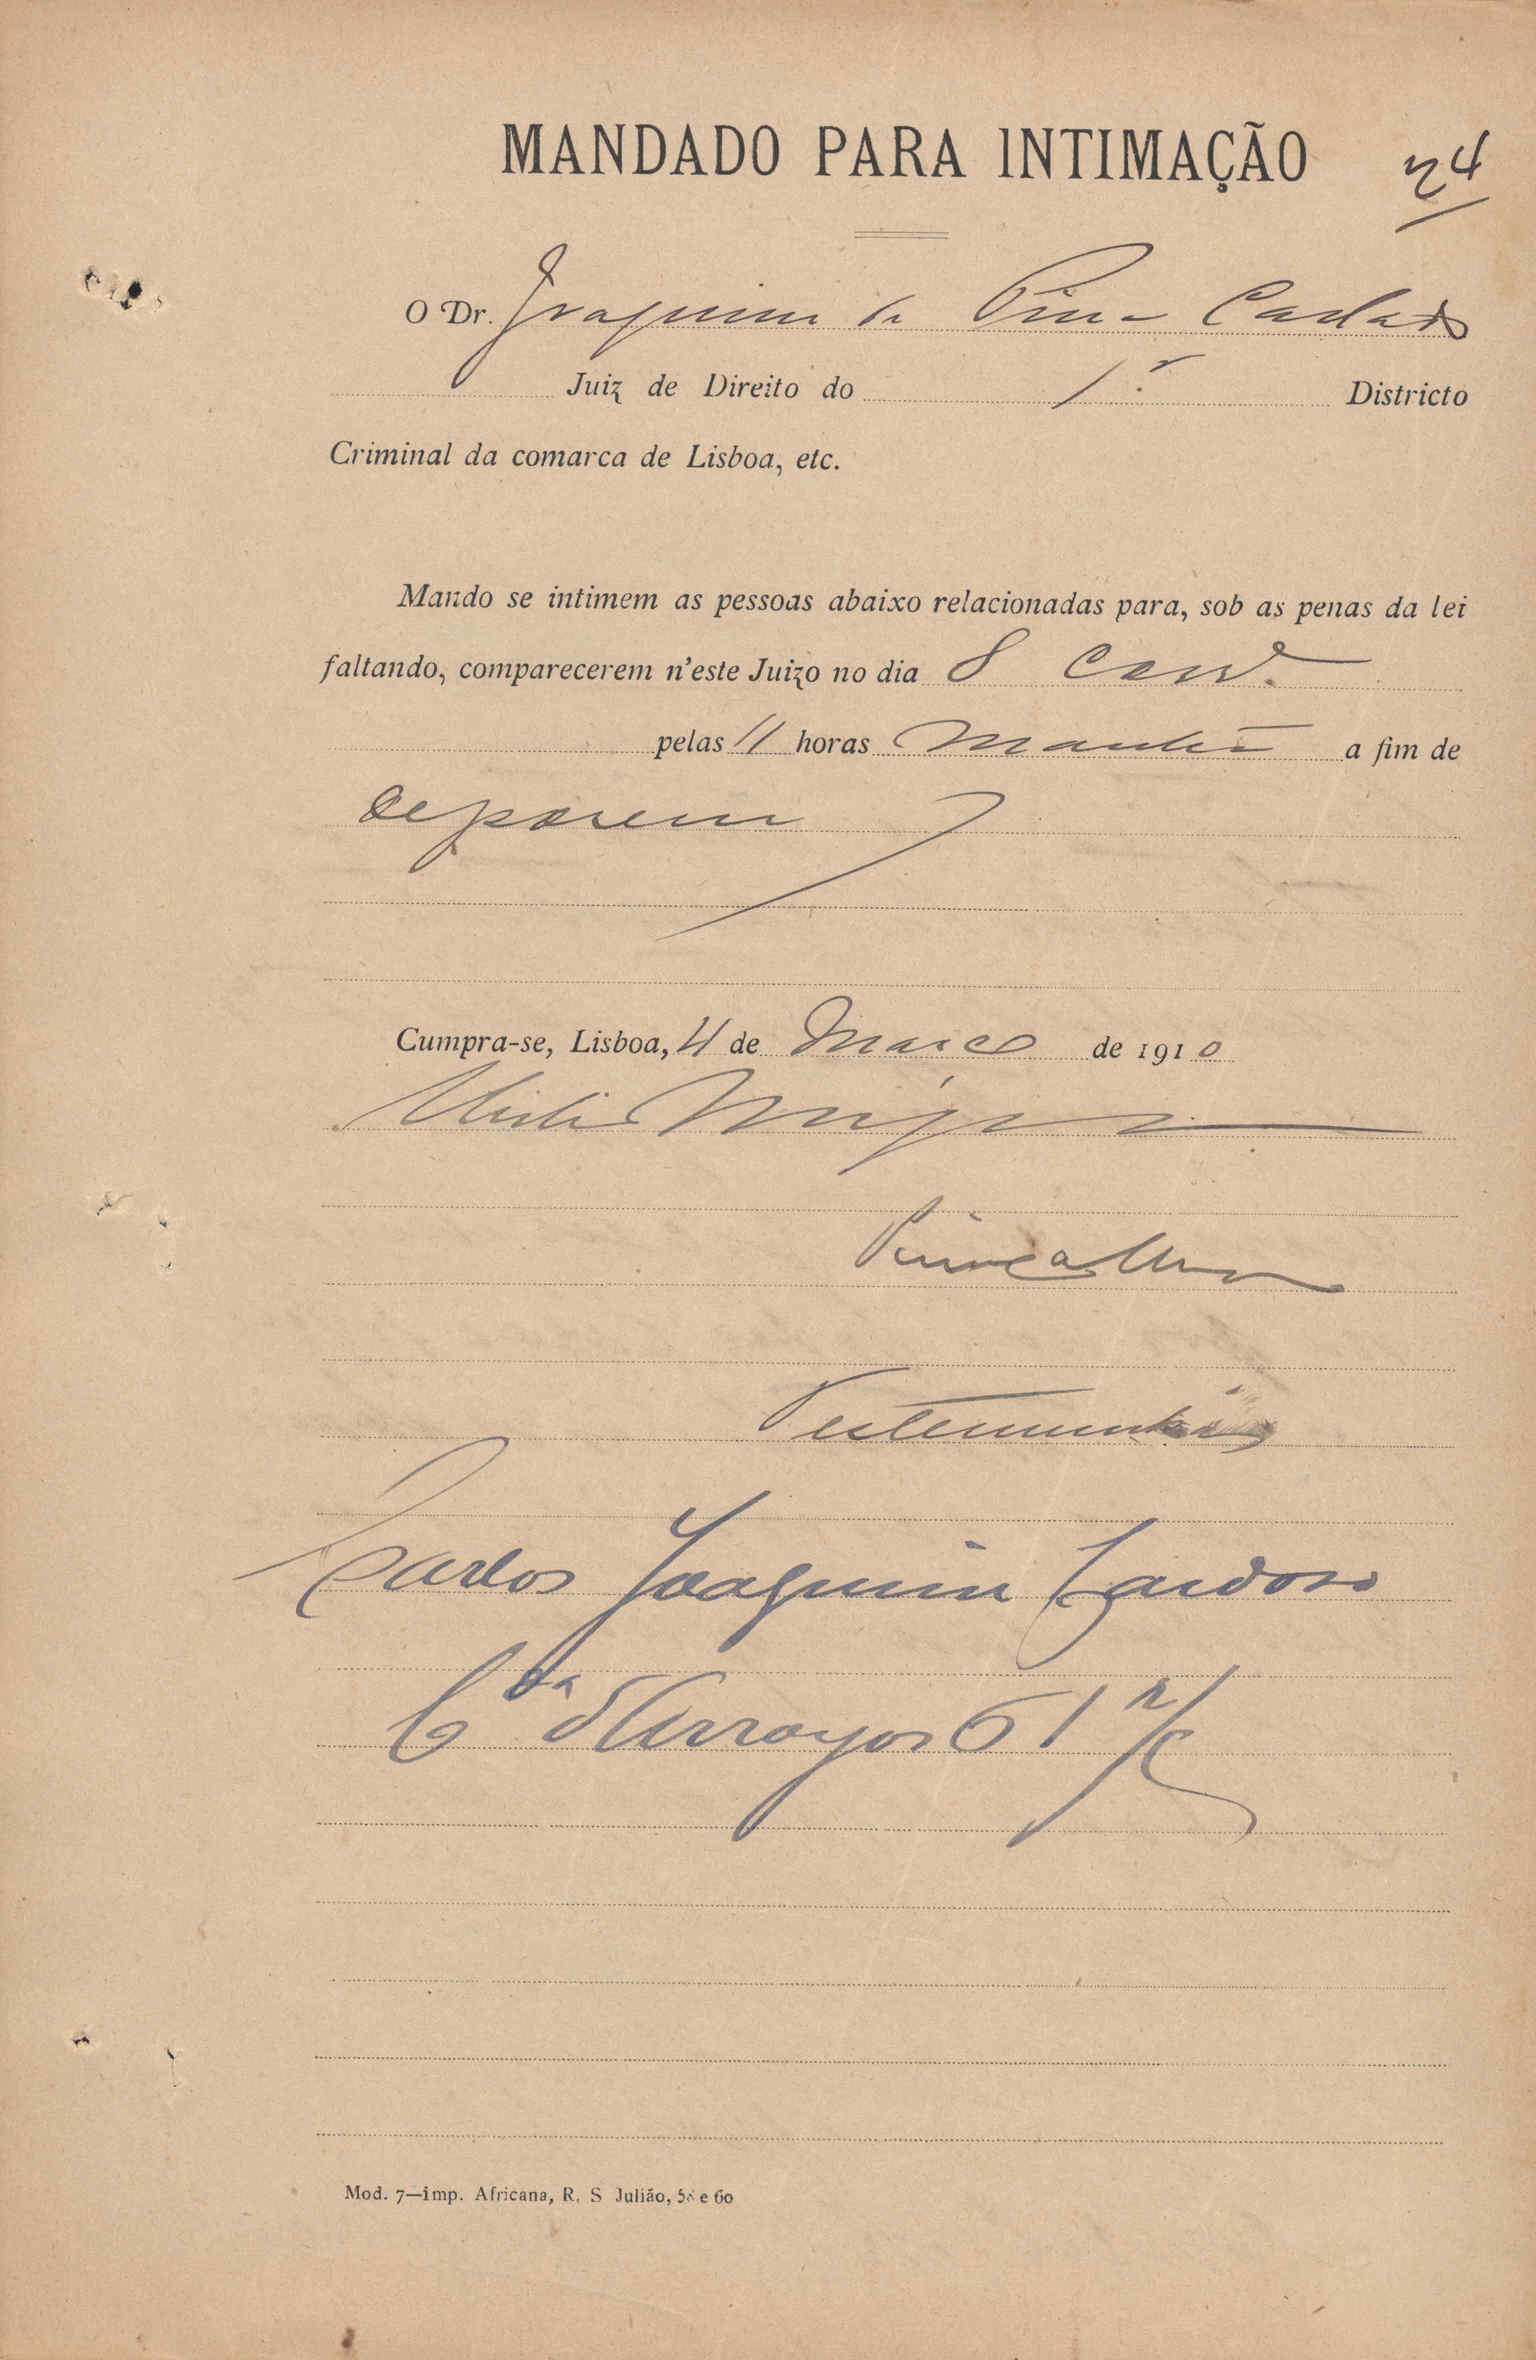 MANDADO PARA INTIMAÇÃO
24
O Dr. Joaquim de Pina Callado
Juiz de Direito do 1º Districto
Criminal da comarca de Lisboa, etc.
Mando se intimem as pessoas abaixo relacionadas para, sob as penas da lei
faltando, comparecerem n'este Juizo no dia 8 corr.
pelas 11 horas manhã a fim de
deporem
Cumpra-se, Lisboa, 4 de Março de 1910
Pina Callado
Testemunha
Carlos Joaquim Cardoso
Cda d'Arroyos 61 r/c
Mod. 7—imp. Africana, R. S Julião, 58 e 60